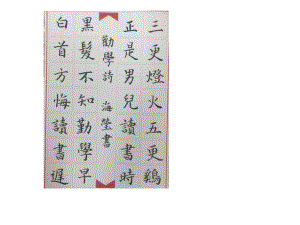 三更燈火五更鷄
正是男兒讀書時
勸學詩 海瑩書
黑髮不知勤學早
白首方悔讀書遲